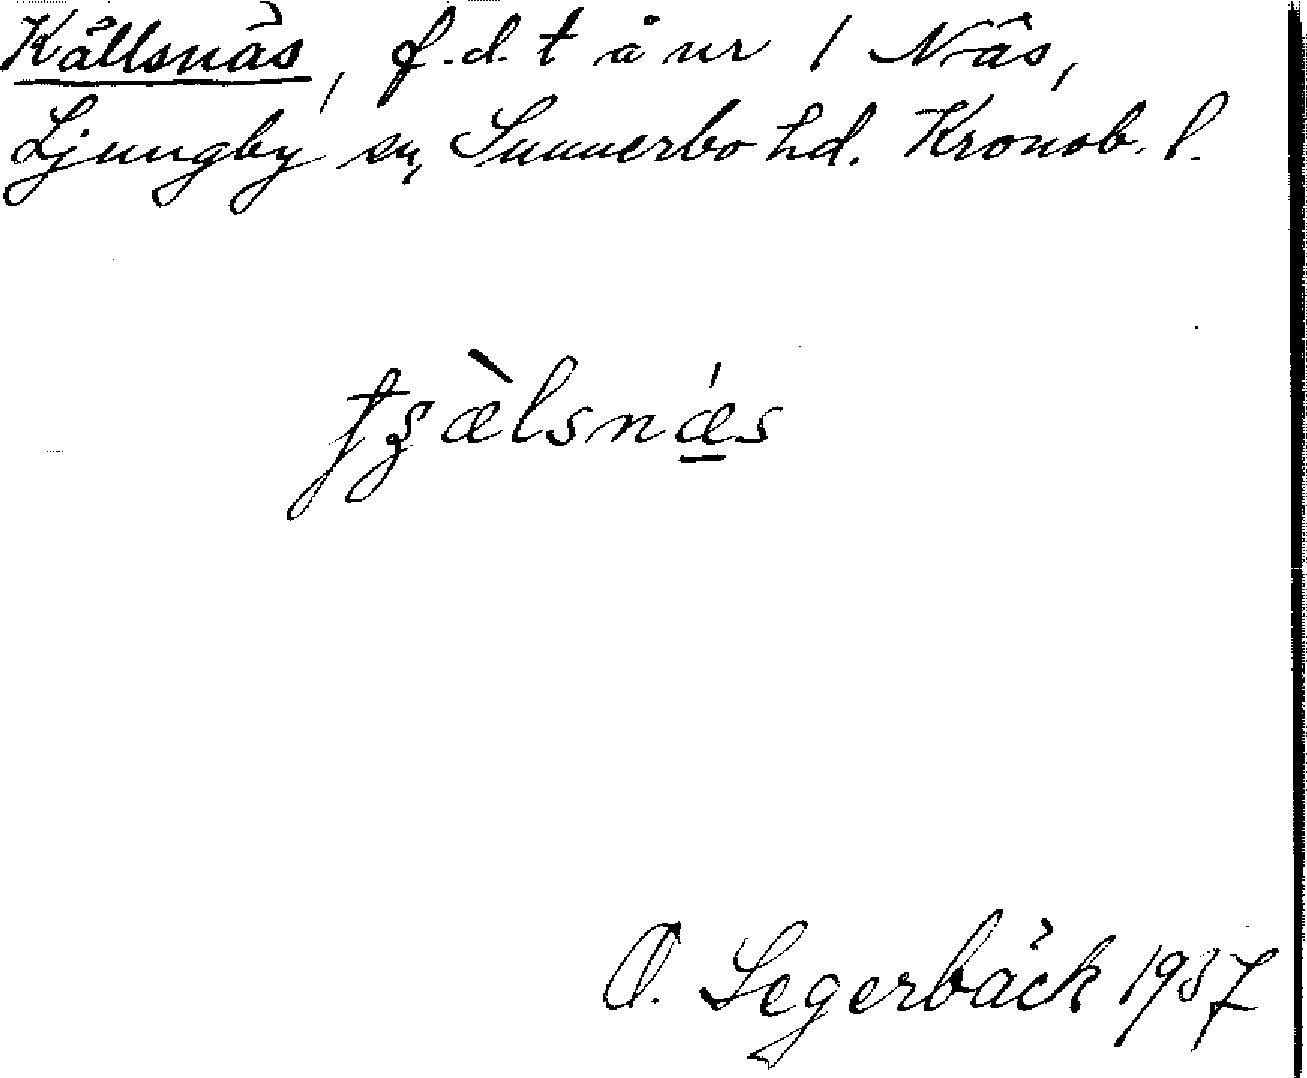 Källsnäs, f.d. t å nr 1 Näs,
Ljungby sn, Sunnerbo hd. Kronob. l.
tʒæ̀lsnǽ̱s
O. Segerbäck 1937